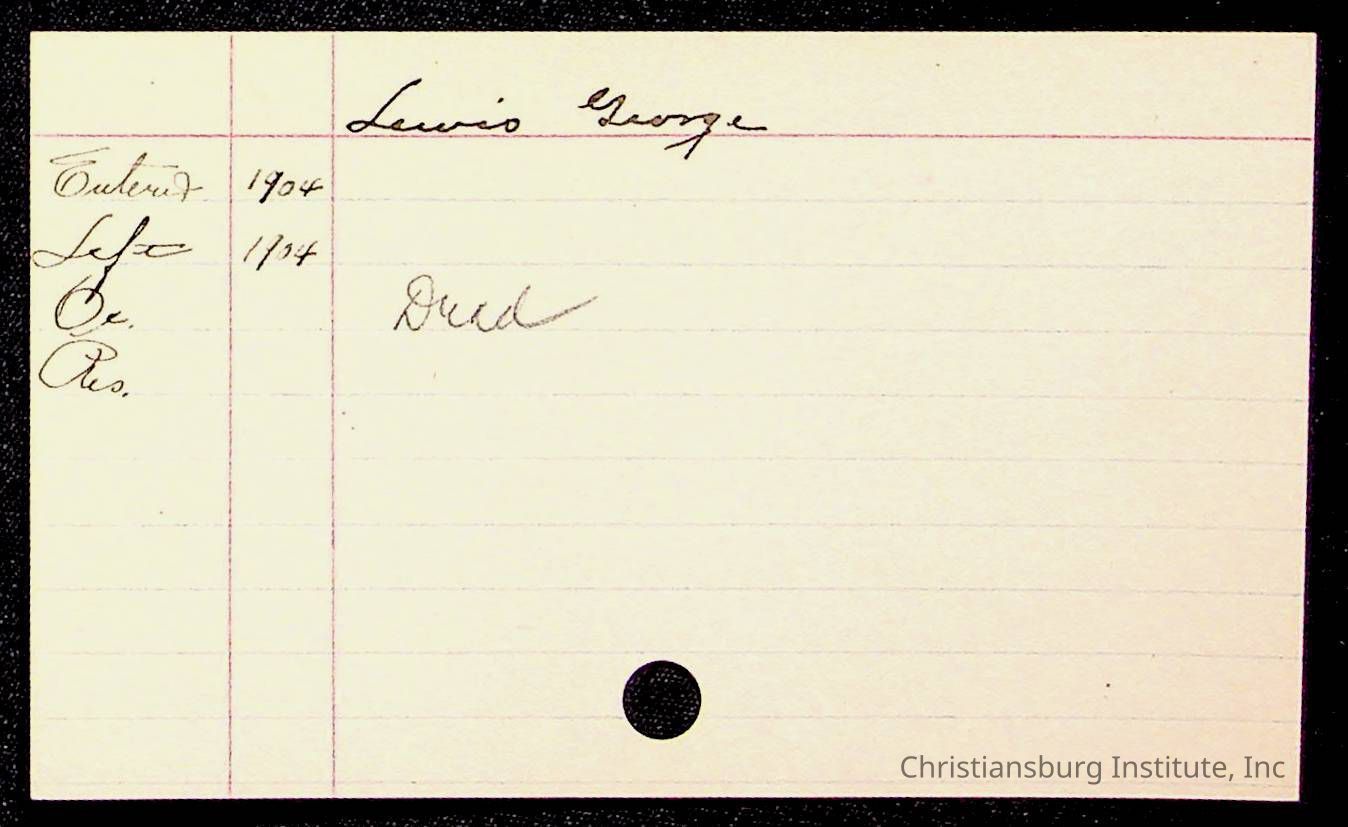 Lewis George
Entered 1904
Left 1904
Oc. Dead
Res.
Christiansburg Institute, Inc